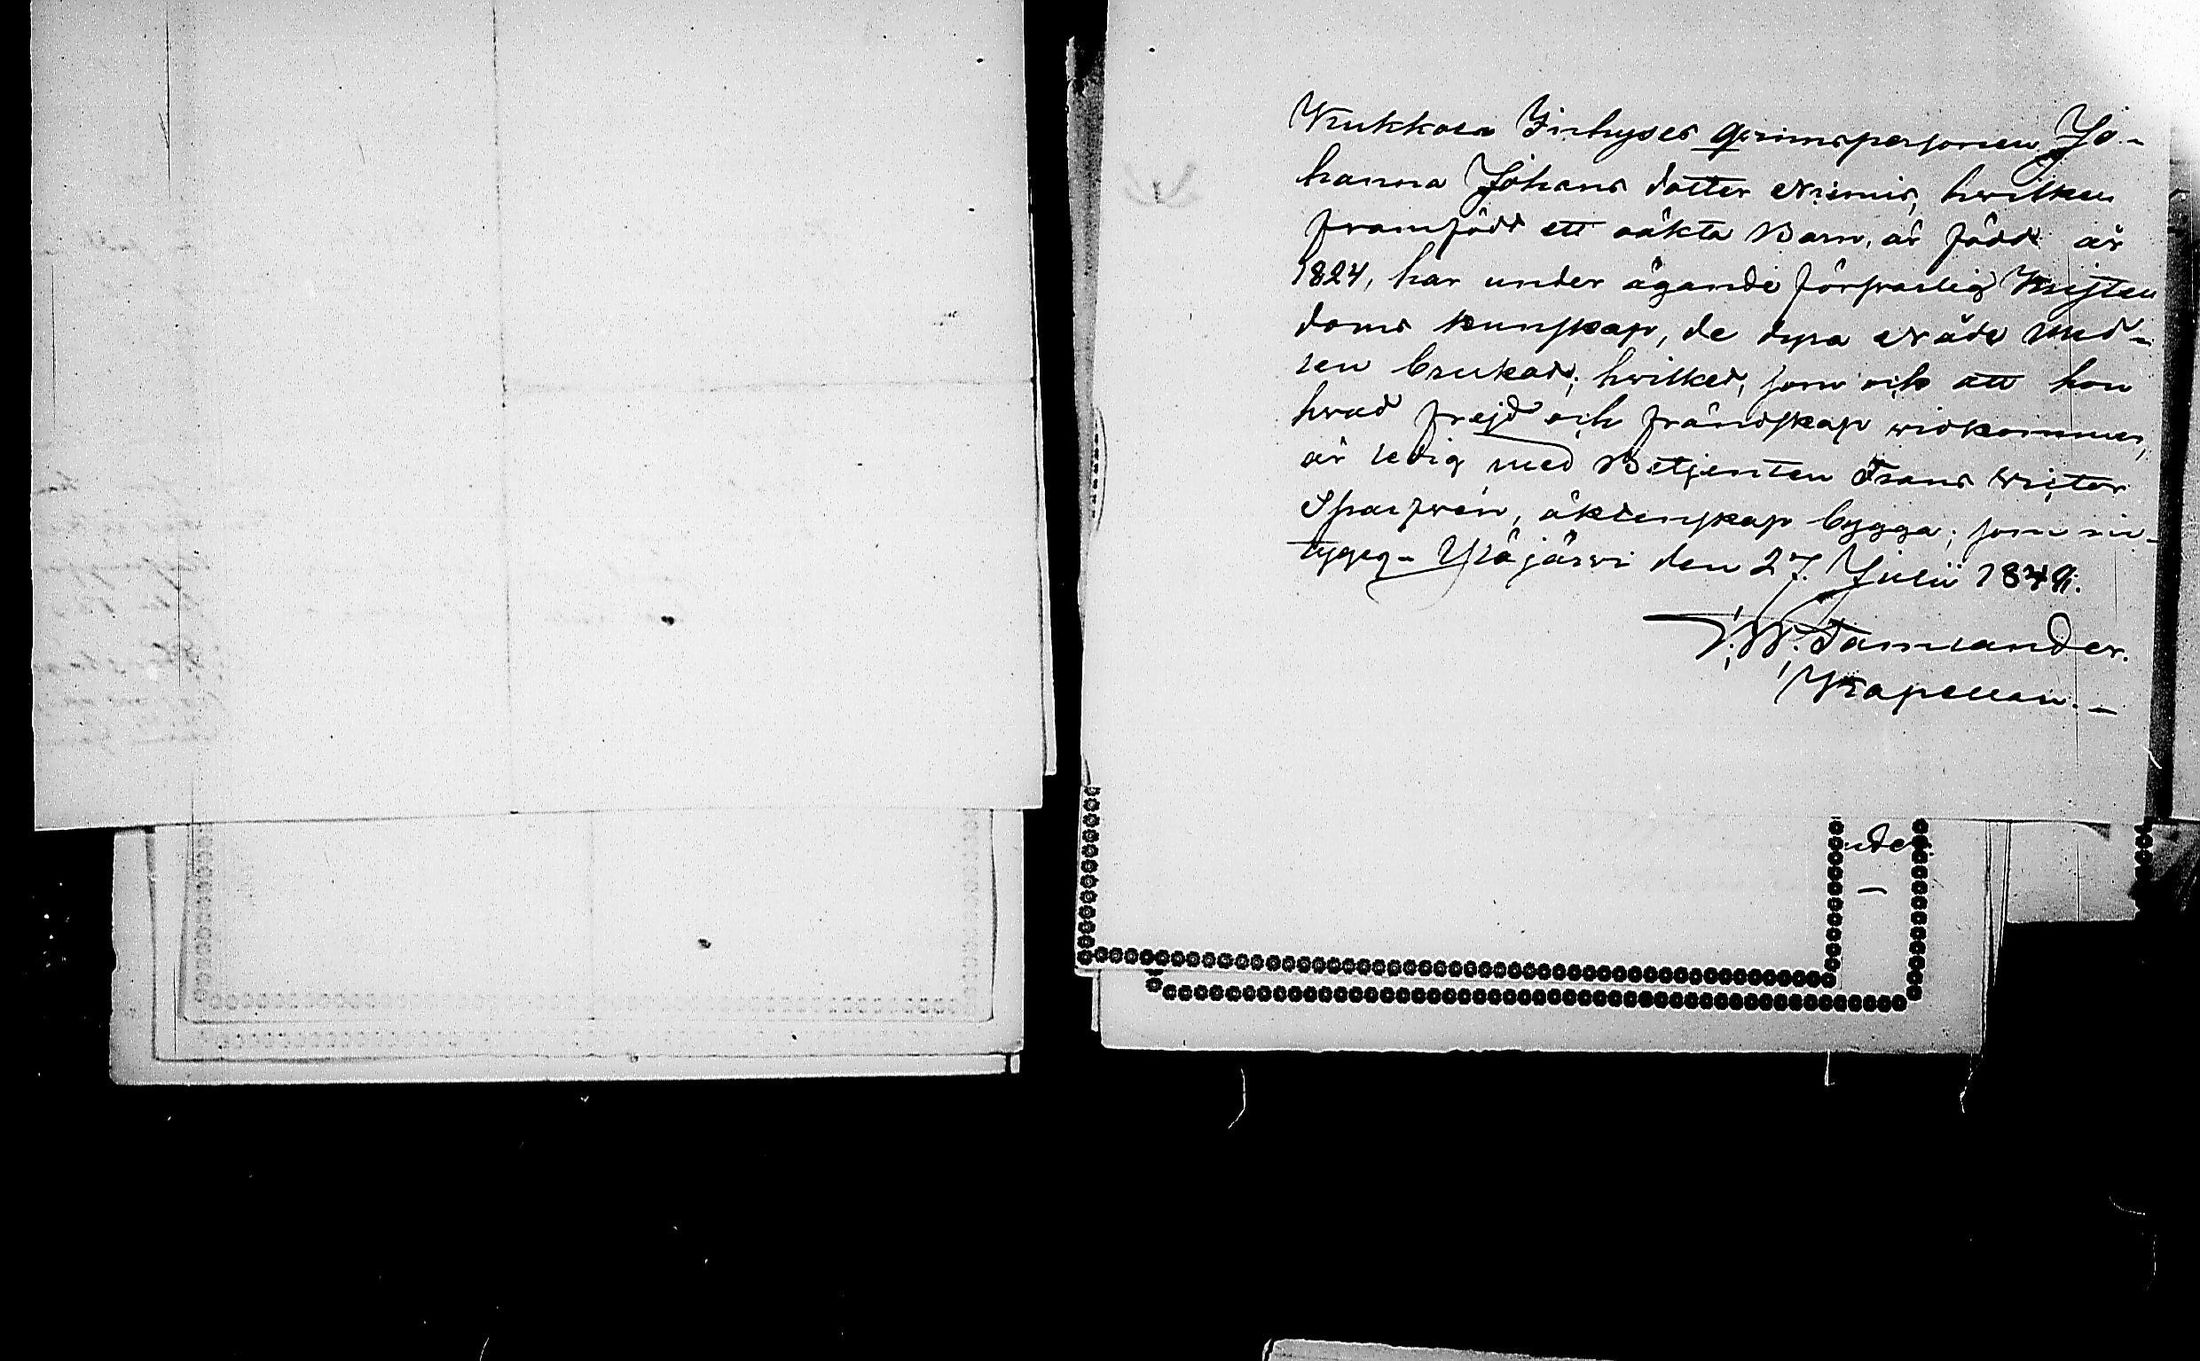 Kukkola Inhyses qwinspersonen Jo-
hanna Johans dotter Niemis, hwilken
framfödt ett oäkta Barn, är född år
1824, har under ägande förswarlig Kristen
doms kunskap, de dyra Nåde med-
len brukat; hwilket, som ock att hon
hwad frejd och frändskap widkommer,
är ledig med Betjenten Frans Wictor
Sparfwén, äktenskap bygga; som in-
tygeg- Ylöjärwi den 27. Julii 1849.
F. W. Tamlander.
Kapellan.-